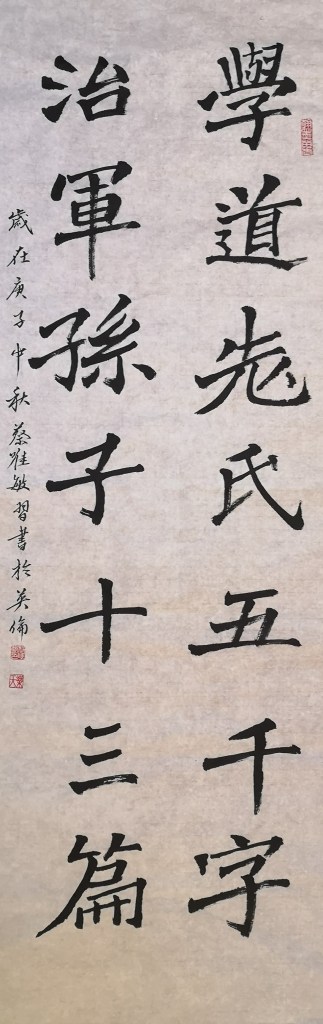 學道老氏五千字
治軍孫子十三篇
歲在庚子中秋蔡敏習書於英倫